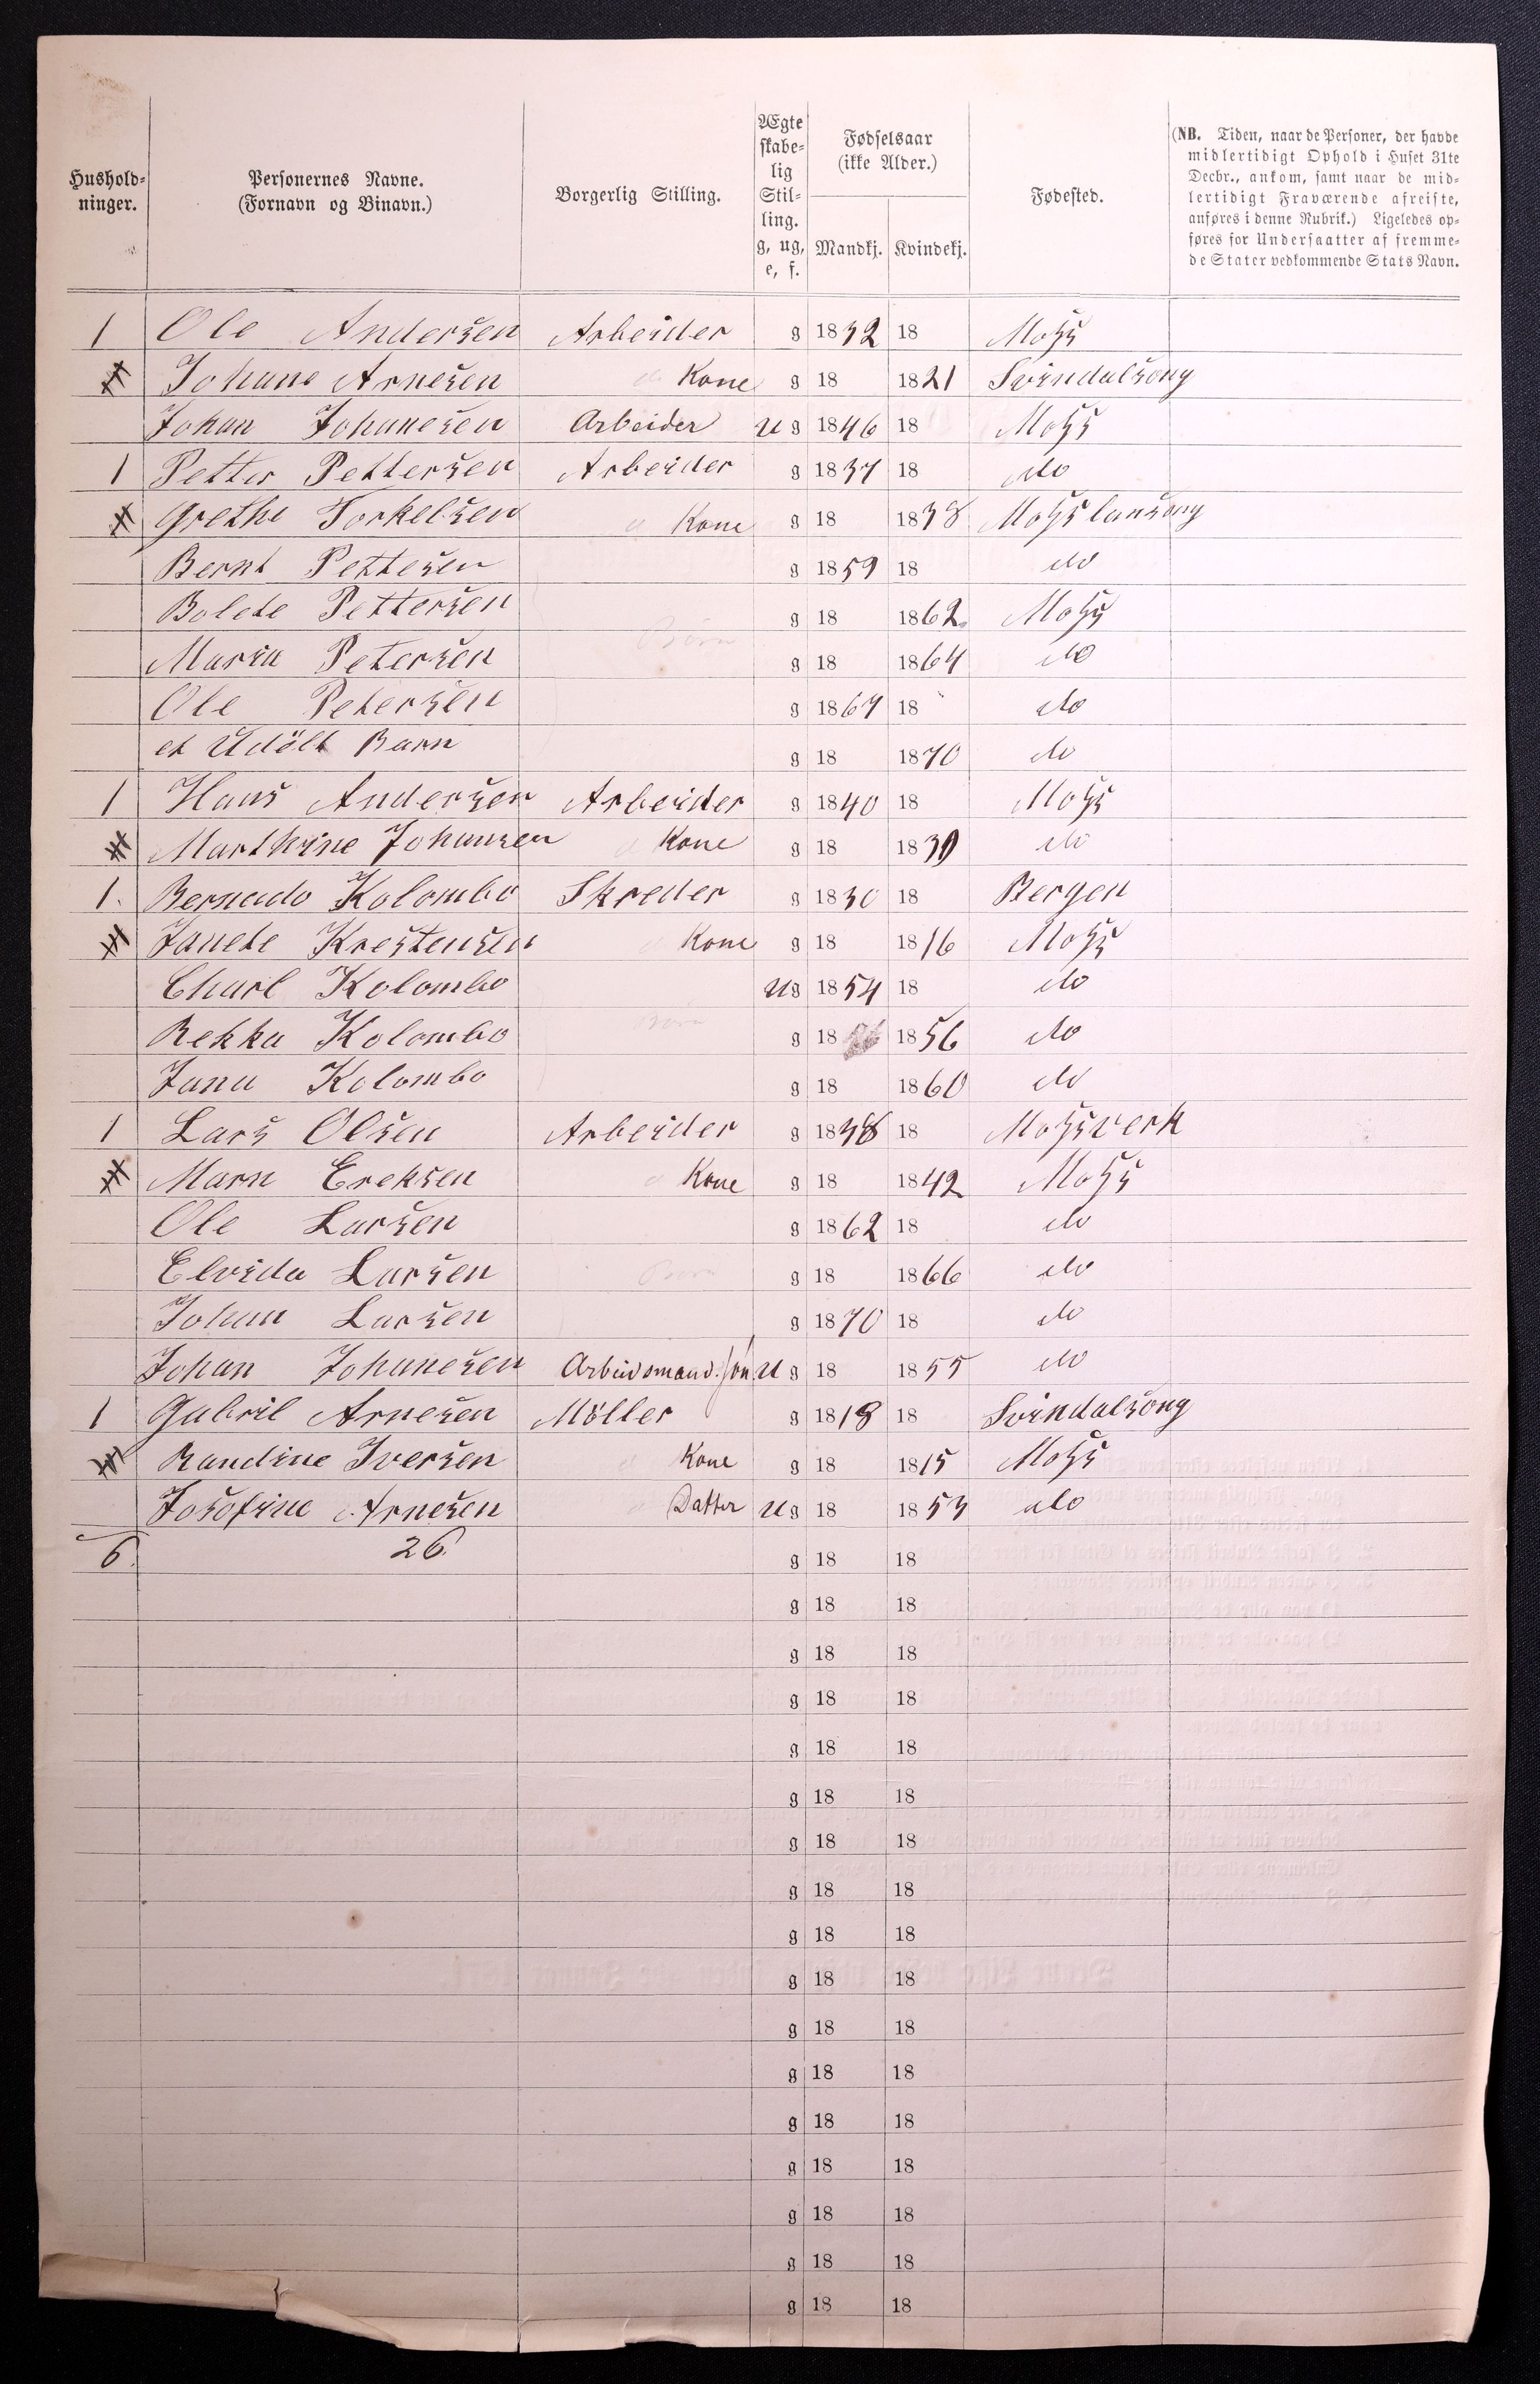 Hushold-
ninger.
Personernes Navne.
(Fornavn og Binavn.)
Borgerlig Stilling.
Ægte
skabe-
lig
Stil-
ling.
g, ug,
e, f.
Fødselsaar
(ikke Alder.)
Mandkj. Kvindekj.
Fødested.
(NB. Tiden, naar de Personer, der havde
midlertidigt Ophold i Huset 31te
Decbr., ankom, samt naar de mid-
lertidigt Fraværende afreiste,
anføres i denne Rubrik.) Ligeledes op-
føres for Undersaatter af fremme-
de Stater vedkommende Stats Navn.
1 Ole Andersen Arbeider g 1832 18 Moss
Johane Arnesen Kone g 18 1821 Svindalsong
Johan Johanesen Arbeider ug 1846 18 Moss
1 Petter Pettersen Arbeider g 1837 18 do
Grethe Torkelsen Kone g 18 1838 Mosslansong
Bernt Pettesen g 1859 18 do
Bolete Pettersen g 18 1862 Moss
Børn
Maren Petersen g 18 1864 do
Ole Petersen g 1867 18 do
et Udölt Barn g 18 1870 do
1 Hans Andersen Arbeider g 1840 18 Moss
Marthine Johansen Kone g 18 1839 do
1. Bernado Kolombo Skreder g 1830 18 Bergen
Janete Krestensen Kone g 18 1816 Moss
Charl Kolombo ug 1854 18 do
Børn
Rekka Kolombo g 18 1856 do
Jana Kolombo g 18 1860 do
1 Lars Olsen Arbeider g 1838 18 Mossverk
Marn Ereksen Kone g 18 1842 Moss
Ole Larsen g 1862 18 do
Elvida Larsen Børn g 18 1866 do
Johan Larsen g 1870 18 do
Johan Johanesen Arbeidsmand. Søn ug 18 1855 do
1 Gabril Arnesen Möller g 1818 18 Svindalsong
Randine Iversen Kone g 18 1815 Moss
Josofine Arnesen Datter ug 18 1853 do
6. 26. g 18 18
g 18 18
g 18 18
g 18 18
g 18 18
g 18 18
g 18 18
g 18 18
g 18 18
g 18 18
g 18 18
g 18 18
g 18 18
g 18 18
g 18 18
g 18 18
g 18 18